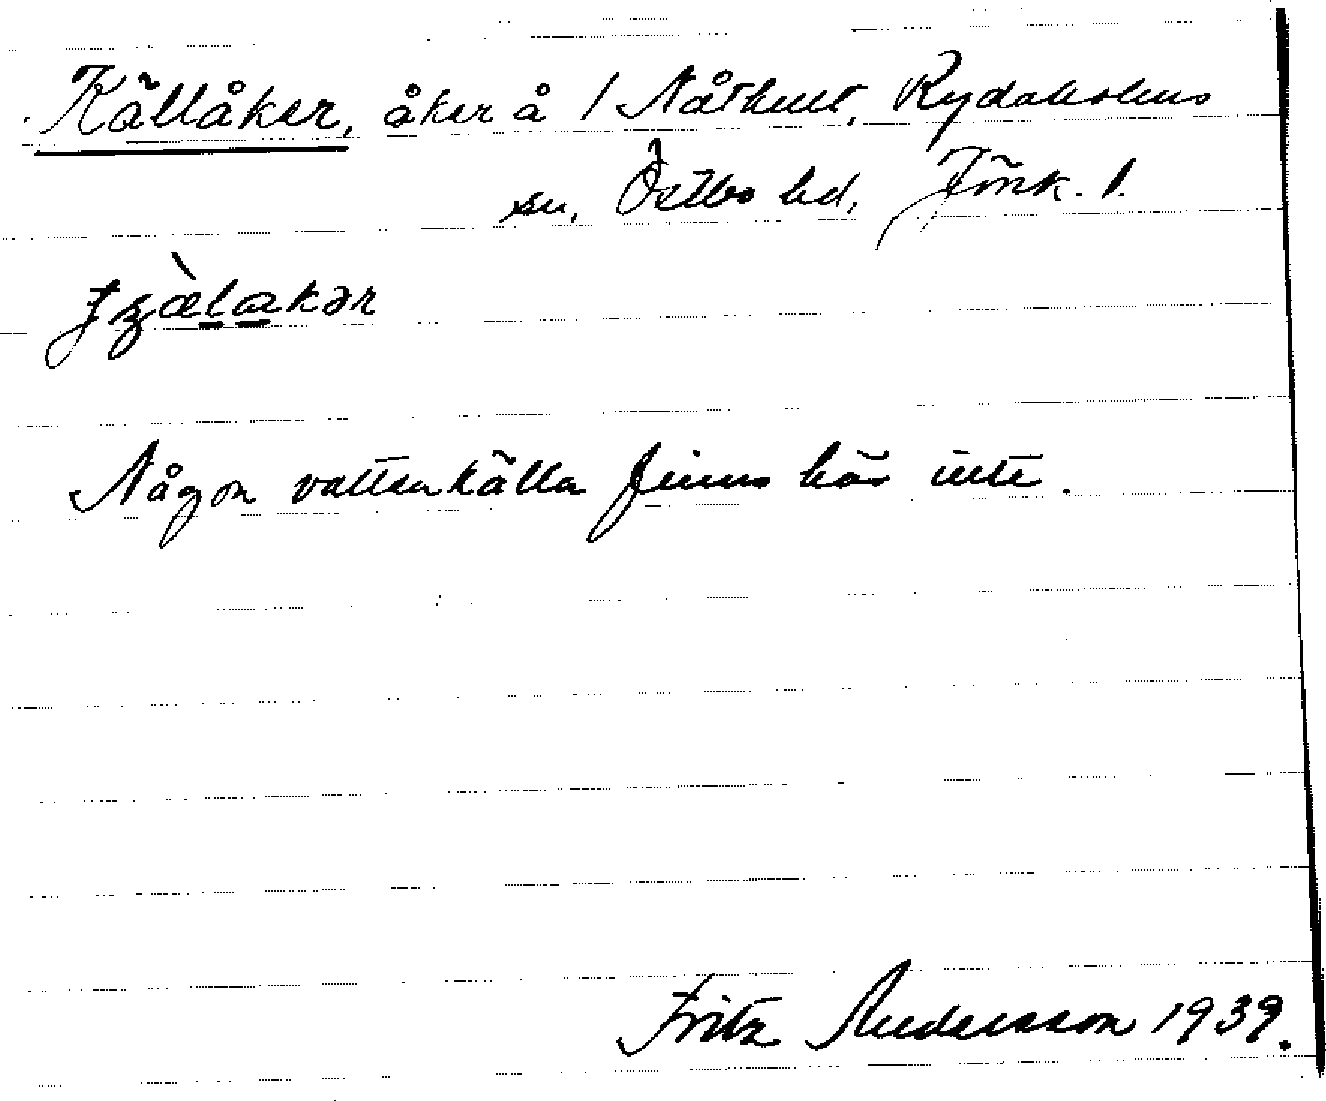 Källåker, åker å / Nåthult, Rydaholms
sn, Östbo hd, Jönk. l.
Någon vattenkälla finns här inte.
Fritz Andersson 1939.